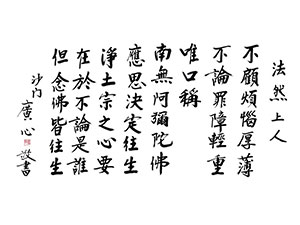 法然上人
不顧煩惱厚薄
不論罪障輕重
唯口稱
南無阿彌陀佛
應思決定往生
淨土宗之心要
在於不論是誰
但念佛皆往生
沙門廣心敬書